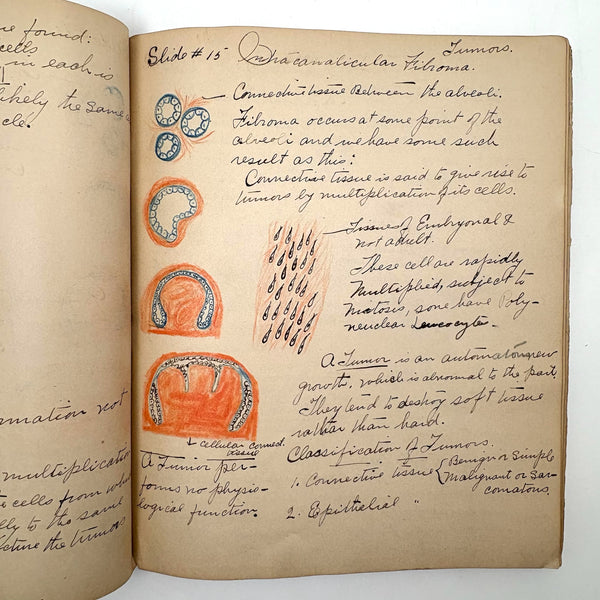 ne found:
cells
in each is
likely the same
cle.
rmation not
multiplication
cells from which
lly to the same
the tumors
Tumors.
Slide # 15 Intracanalicular Fibroma.
Connective tissue Between the alveoli.
Fibroma occurs at some point of the
alveoli and we have some such
result as this:
Connective tissue is said to give rise to
tumors by multiplication of its cells.
Tissues of Embryonal &
not adult.
These cell are rapidly
Multiplied, subject to
Mitosis, some have Poly-
neuclear Leucocytes.
A Tumor is an
growth, which is abnormal to the part.
They tend to destroy soft tissue
rather than hard.
cellular connect.
tissue
A Tumor per-
forms no physio-
logical function.
Classification of Tumors.
1. Connective tissue { Benign or Simple
Malignant or Sar-
comatous.
2. Epithelial "